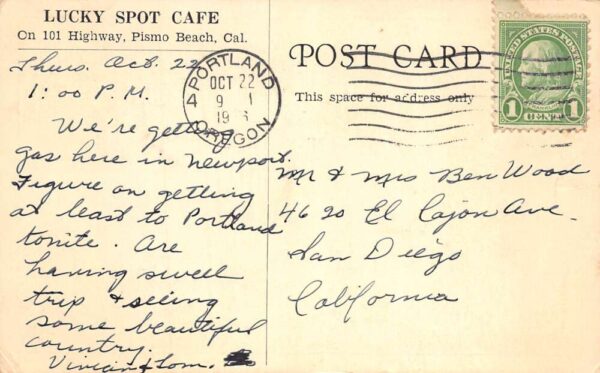 LUCKY SPOT CAFE
On 101 Highway, Pismo Beach, Cal.
Thurs. Oct. 22
1:00 P.M.
We're getting
gas here in Newport.
Figure on getting
at least to Portland
tonite. Are
having swell
trip & seeing
some beautiful
country.
Vivian & Tom.
PORTLAND
OCT 22
9
OREGON
POST CARD
This space for address only
UNITED STATES POSTAGE
1 CENT 1
Mr & Mrs Ben Wood
4620 El Cajon Ave.
San Diego
California